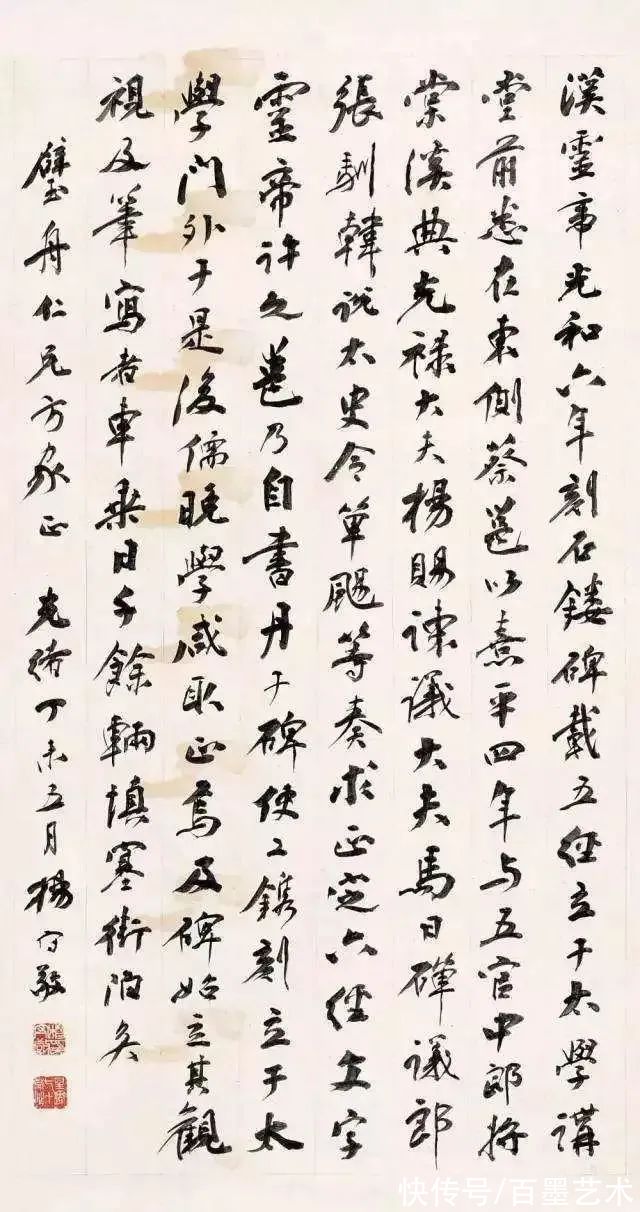 漢靈帝光和六年刻石鏤碑載五經立于太學講
堂前悉在東側蔡邕以熹平四年与五官中郎將
棠溪典光祿大夫楊賜諫議大夫馬日磾議郎
張馴韓說太史令單颺等奏求正定六經文字
靈帝许之邕乃自書丹于碑使工鐫刻立于太
學门外于是後儒晚學咸取正焉及碑始立其觀
視及筆寫者車乘日千餘輛填塞街陌矣
璧舟仁兄方家正 光緒丁未五月楊守敬
快传号/百墨艺术